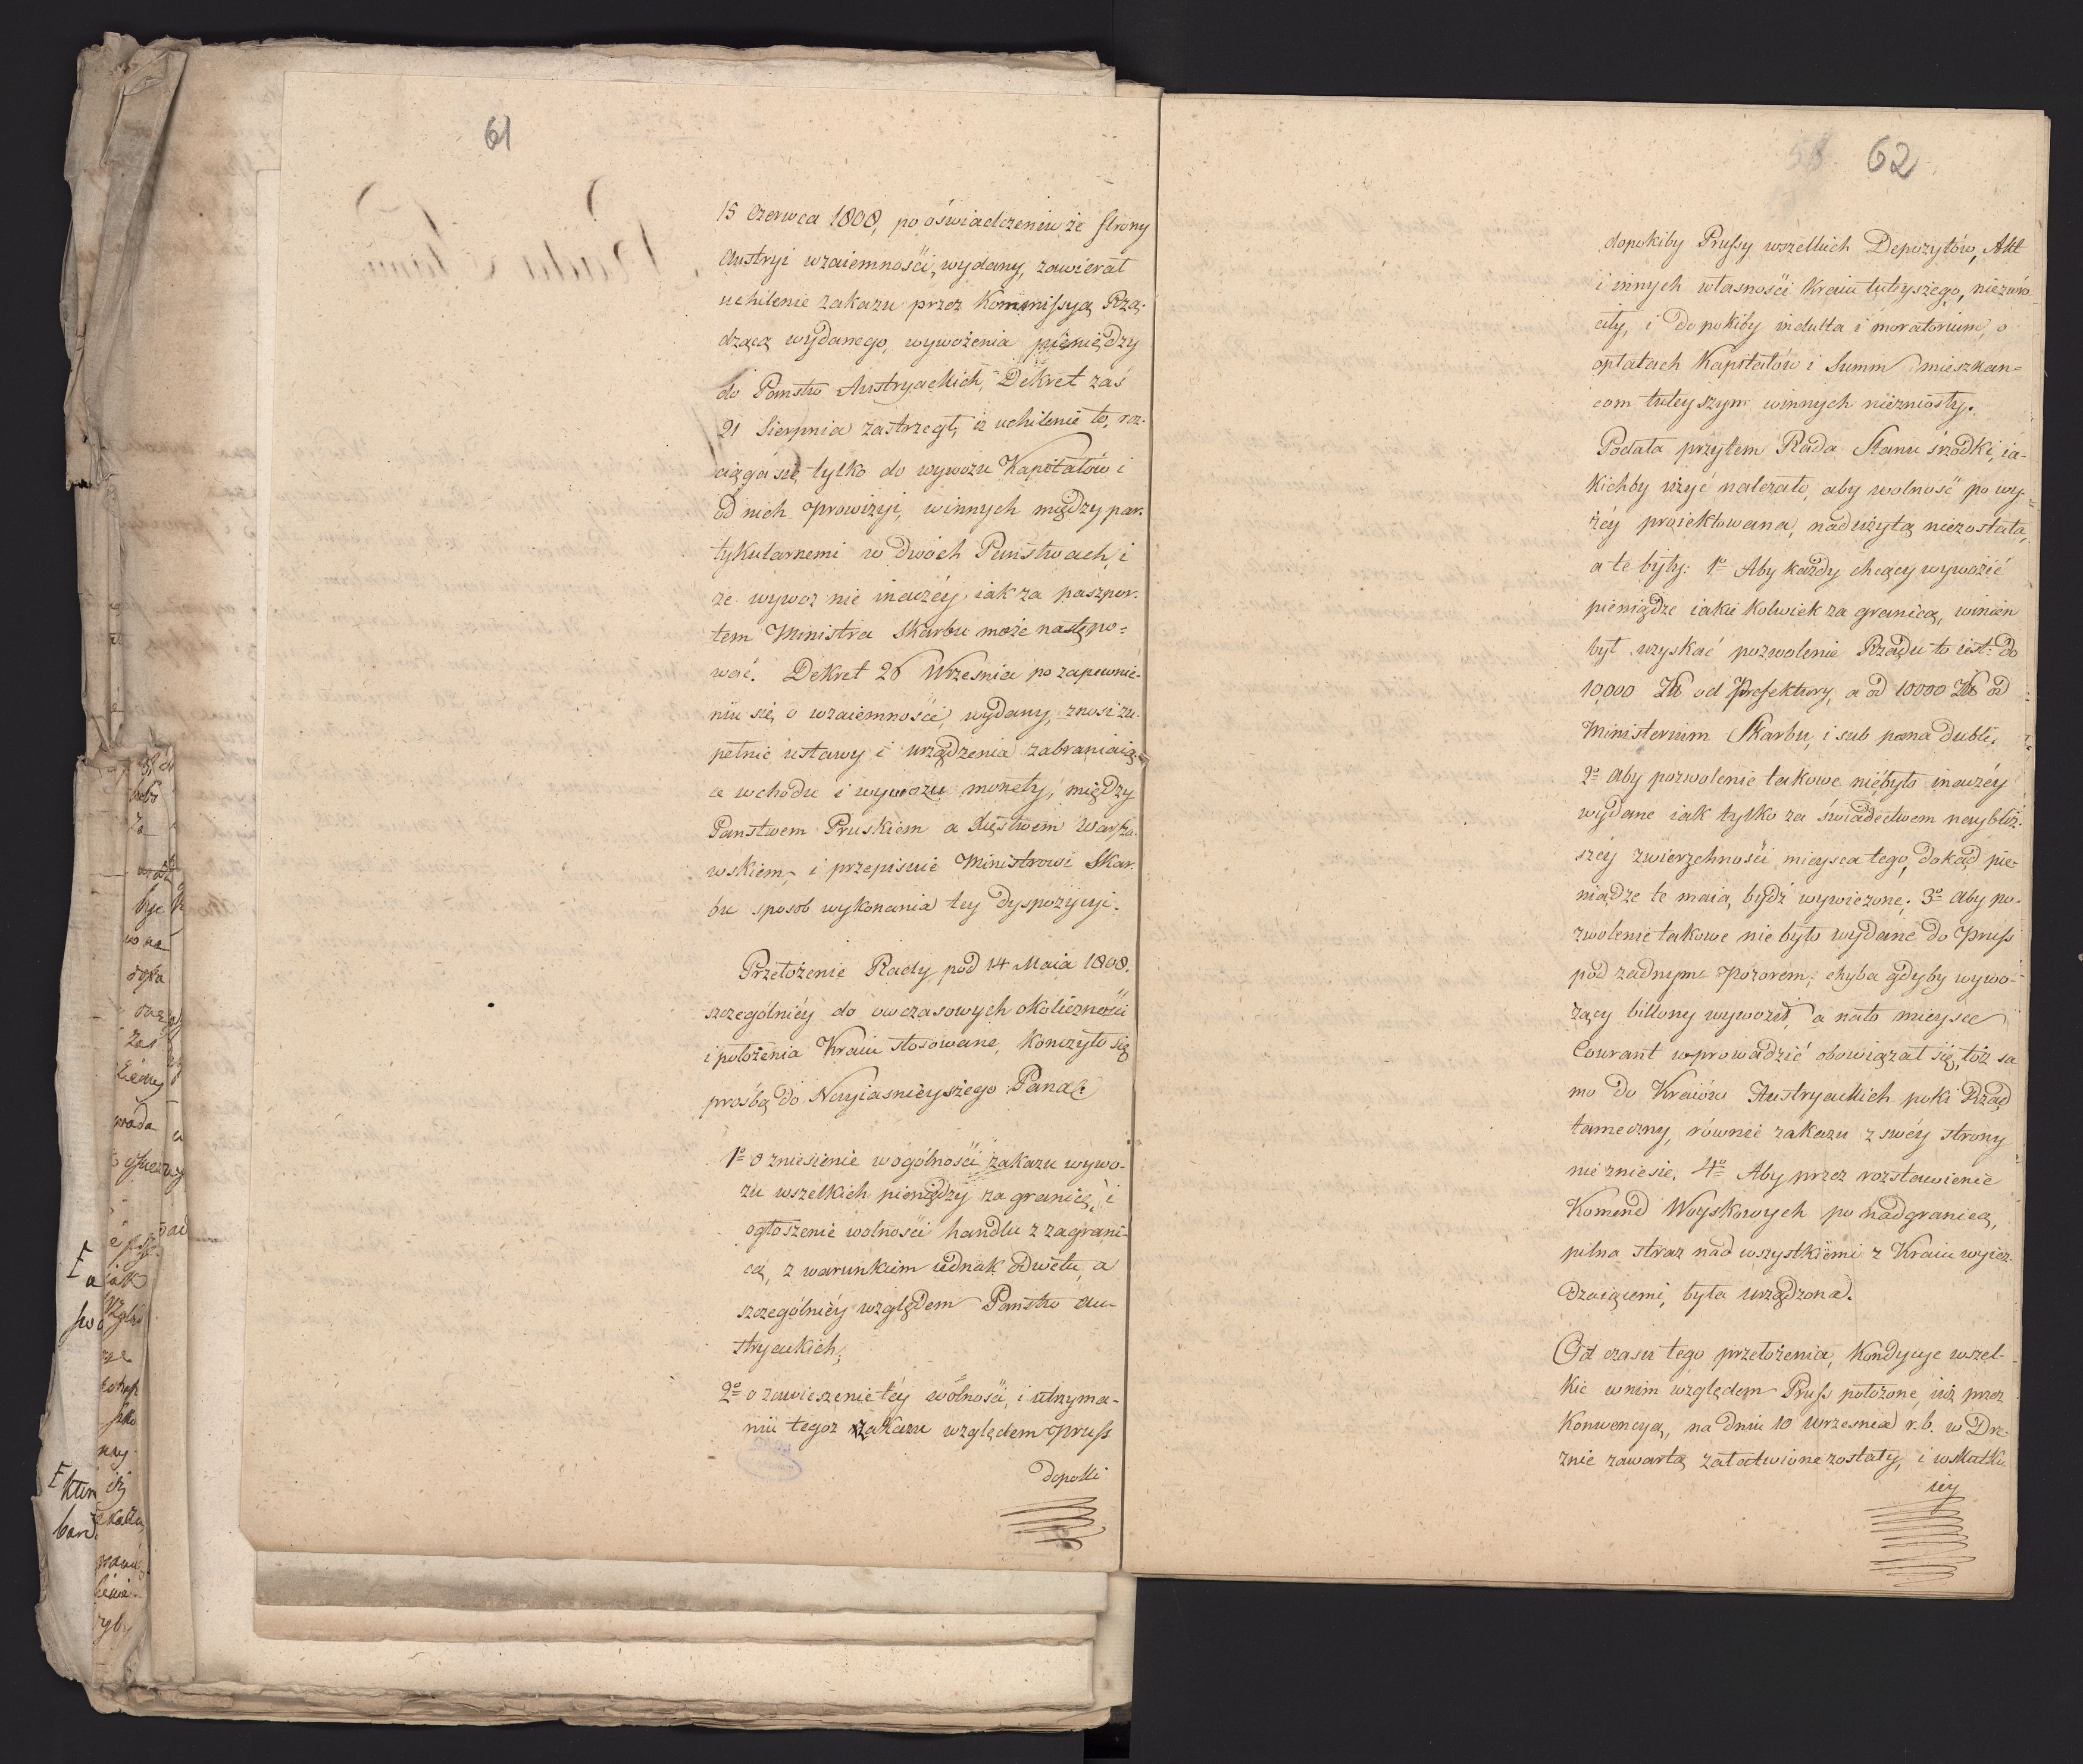 61
15 Czerwca 1808, po oświadczeniu że strony
Austryi wzaiemności, wydany, zawierał
uchilenie zakazu przez Kommissyą Rzą-
dzącą wydanego, wywożenia pieniędzy
do Państw Austryackich, Dekret zaś
21 Sierpnia zastrzegł, iż uchilenie to, roz-
ciąga się tylko do wywozu Kapitałów i
od nich prowizyi, winnych między par-
tykularnemi w dwóch Państwach, i
że wywoz nie inaczéy, iak za paszpor-
tem Ministra Skarbu może następo=
wać. Dekret 26 Września po zapewnie-
niu się o wzaiemności, wydany, znosi zu-
pełnie ustawy i urządzenia zabraniaią-
ce wchodu i wywozu monety, między
Panstwem Pruskiem a Xięstwem Warsza-
wskiem, i przepisuie Ministrowi Skar-
bu sposob wykonania tey dyspozycyi.
Przełożenie Rady pod 14 Maia 1808.
szczególniéy do owczasowych okoliczności
i położenia Kraiu stosowane, kończyło się
prośbą do Nayiasnieyszego Pana:
1º o zniesienie wogólności zakazu wywo-
zu wszelkich pieniędzy za granicę, i
ogłoszenie wolności handlu z zagrani-
cą, z warunkiem iednak odwetu, a
szczególniéy względem Państw Au-
stryackich;
2º o zawieszenie téy wolności, i utrzyma-
niu tegoż zakazu względem Pruss
dopoki
62
dopokiby Prussy wszelkich Depozytów, Akt
i innych własności Kraiu tuteyszego, niezwró-
ciły, i dopokiby indulta i moratorium, o
opłatach Kapitałów i Summ mieszkań=
com tuteyszym winnych niezniosły.
Podała przytem Rada Stanu środki, ia-
kichby użyć należało, aby wolność po wy-
żéy proiektowana, nadużytą niezostała,
a te były: 1º Aby każdy chcący wywozić
pieniądze iakie kolwiek za granicą, winien
był uzyskać pozwolenie Rządu to iest: do
10,000 Zł od Prefektury, a od 10000 Zł od
Ministerium Skarbu, i sub poena dubli.
2º Aby pozwolenie takowe niebyło inaczéy
wydane iak tylko za świadectwem naybliż-
szey zwierzchności mieysca tego, dokąd pie-
niądze te maią bydź wywiezone; 3º Aby po-
zwolenie takowe nie było wydane do Pruss
pod żadnym pozorem, chyba gdyby wywo-
zący billony wywoził, a nato mieysce
Courant wprowadzić obowiązał się, toż sa
mo do Kraiów Austryackich poki Rząd
tameczny, równie zakazu z swéy strony
nie zniesie. 4º Aby przez rozstawienie
Komend Woyskowych po nadgranicą,
pilna straz nad wszystkiemi z Kraiu wyież-
dzaiącemi, była urządzona.
Od czasu tego przełożenia, Kondycye wszel-
kie wnim względem Pruss położone, iuż przez
Konwencyą, na dniu 10 Września r. b. w Dre-
znie zawartą załatwione zostały, i wskutku
iey